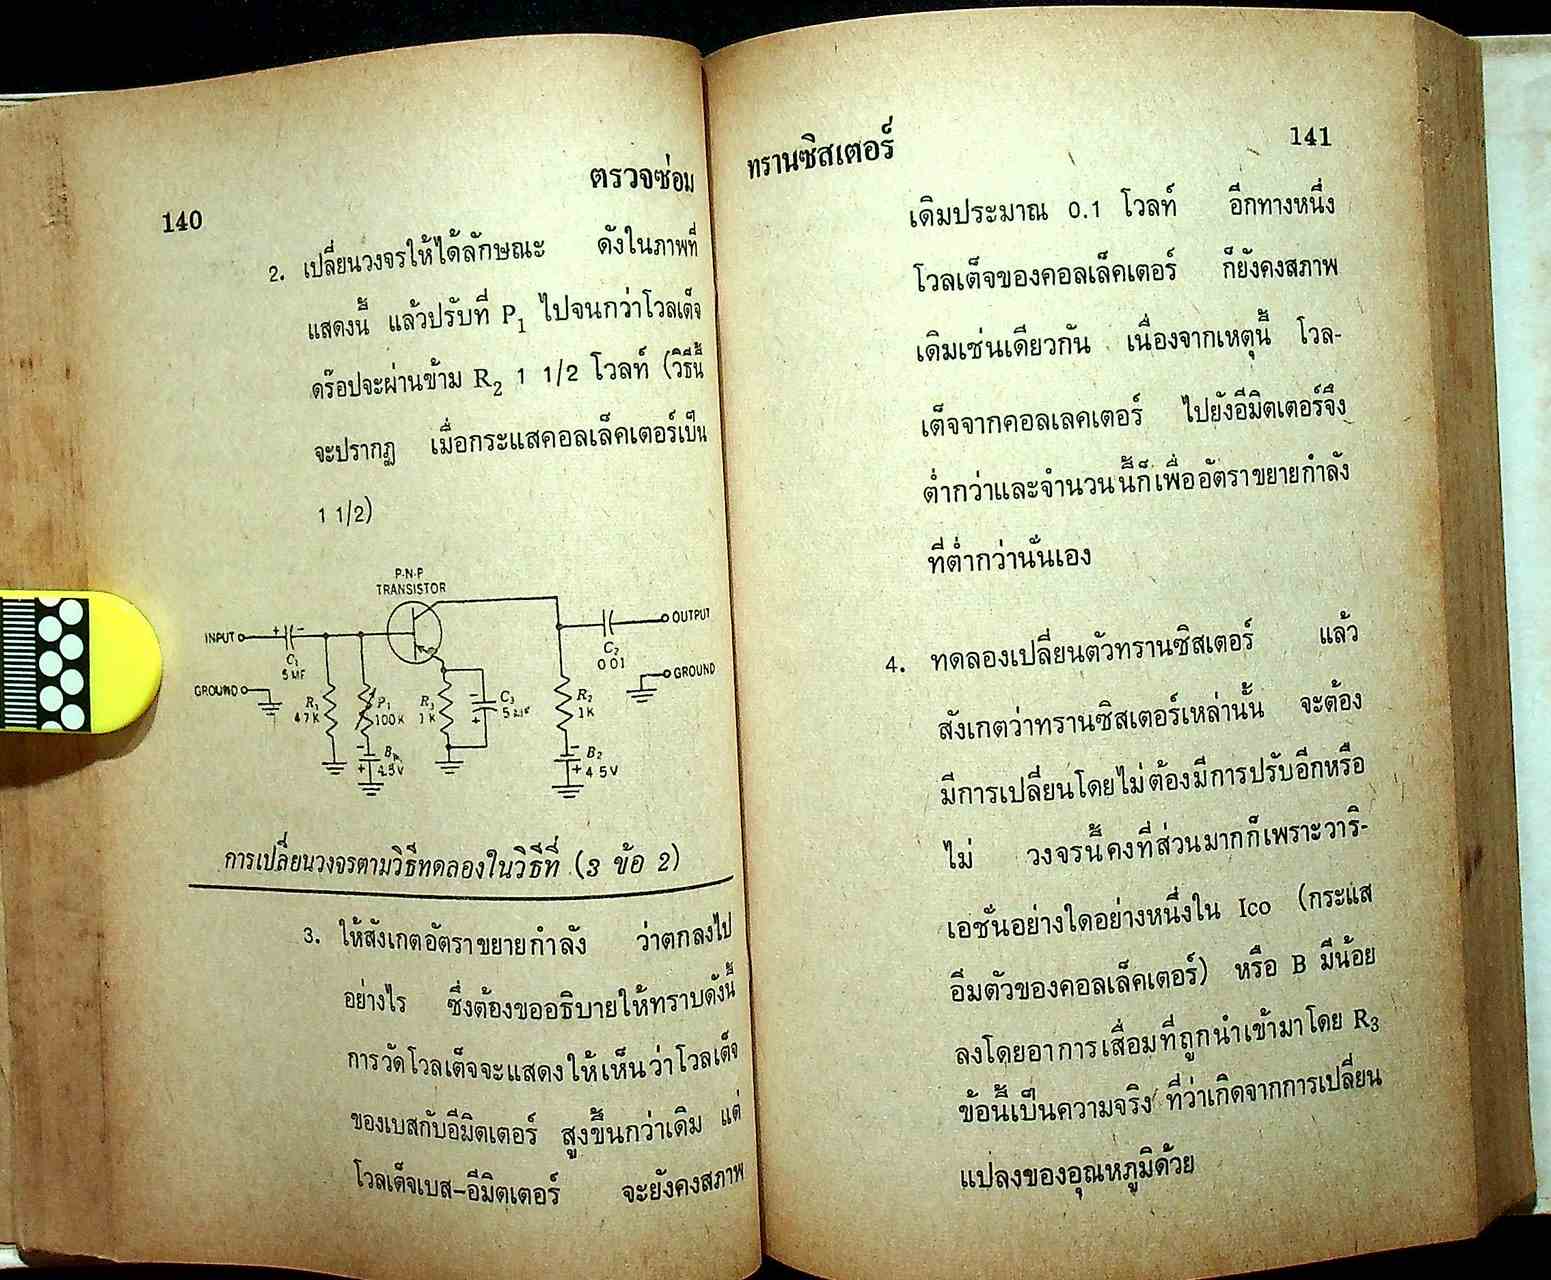 140
ตรวจซ่อม
2. เปลี่ยนวงจรให้ได้ลักษณะ ดังในภาพที่
แสดงนี้ แล้วปรับที่ P1 ไปจนกว่าโวลเต็จ
ดร๊อปจะผ่านข้าม R2 1 1/2 โวลท์ (วิธีนี้
จะปรากฏ เมื่อกระแสคอลเล็คเตอร์เป็น
1 1/2)
P-N-P
TRANSISTOR
INPUT
+ -
C1
5 MF
GROUND
R1
47K
P1
100K
B1
- +
4.5V
R3
1K
C3
5 MF
- +
R2
1K
B2
- +
4 5V
C2
0 01
OUTPUT
GROUND
การเปลี่ยนวงจรตามวิธีทดลองในวิธีที่ (3 ข้อ 2)
3. ให้สังเกตอัตราขยายกำลัง ว่าตกลงไป
อย่างไร ซึ่งต้องขออธิบายให้ทราบดังนี้
การวัดโวลเต็จจะแสดงให้เห็นว่าโวลเต็จ
ของเบสกับอีมิตเตอร์ สูงขึ้นกว่าเดิม แต่
โวลเต็จเบส-อีมิตเตอร์ จะยังคงสภาพ
ทรานซิสเตอร์
141
เดิมประมาณ 0.1 โวลท์ อีกทางหนึ่ง
โวลเต็จของคอลเล็คเตอร์ ก็ยังคงสภาพ
เดิมเช่นเดียวกัน เนื่องจากเหตุนี้ โวล-
เต็จจากคอลเลคเตอร์ ไปยังอีมิตเตอร์จึง
ต่ำกว่าและจำนวนนี้ก็เพื่ออัตราขยายกำลัง
ที่ต่ำกว่านั่นเอง
4. ทดลองเปลี่ยนตัวทรานซิสเตอร์ แล้ว
สังเกตว่าทรานซิสเตอร์เหล่านั้น จะต้อง
มีการเปลี่ยนโดยไม่ต้องมีการปรับอีกหรือ
ไม่ วงจรนี้คงที่ส่วนมากก็เพราะวาริ-
เอชั่นอย่างใดอย่างหนึ่งใน Ico (กระแส
อิ่มตัวของคอลเล็คเตอร์) หรือ B มีน้อย
ลงโดยอาการเสื่อมที่ถูกนำเข้ามาโดย R3
ข้อนี้เป็นความจริง ที่ว่าเกิดจากการเปลี่ยน
แปลงของอุณหภูมิด้วย